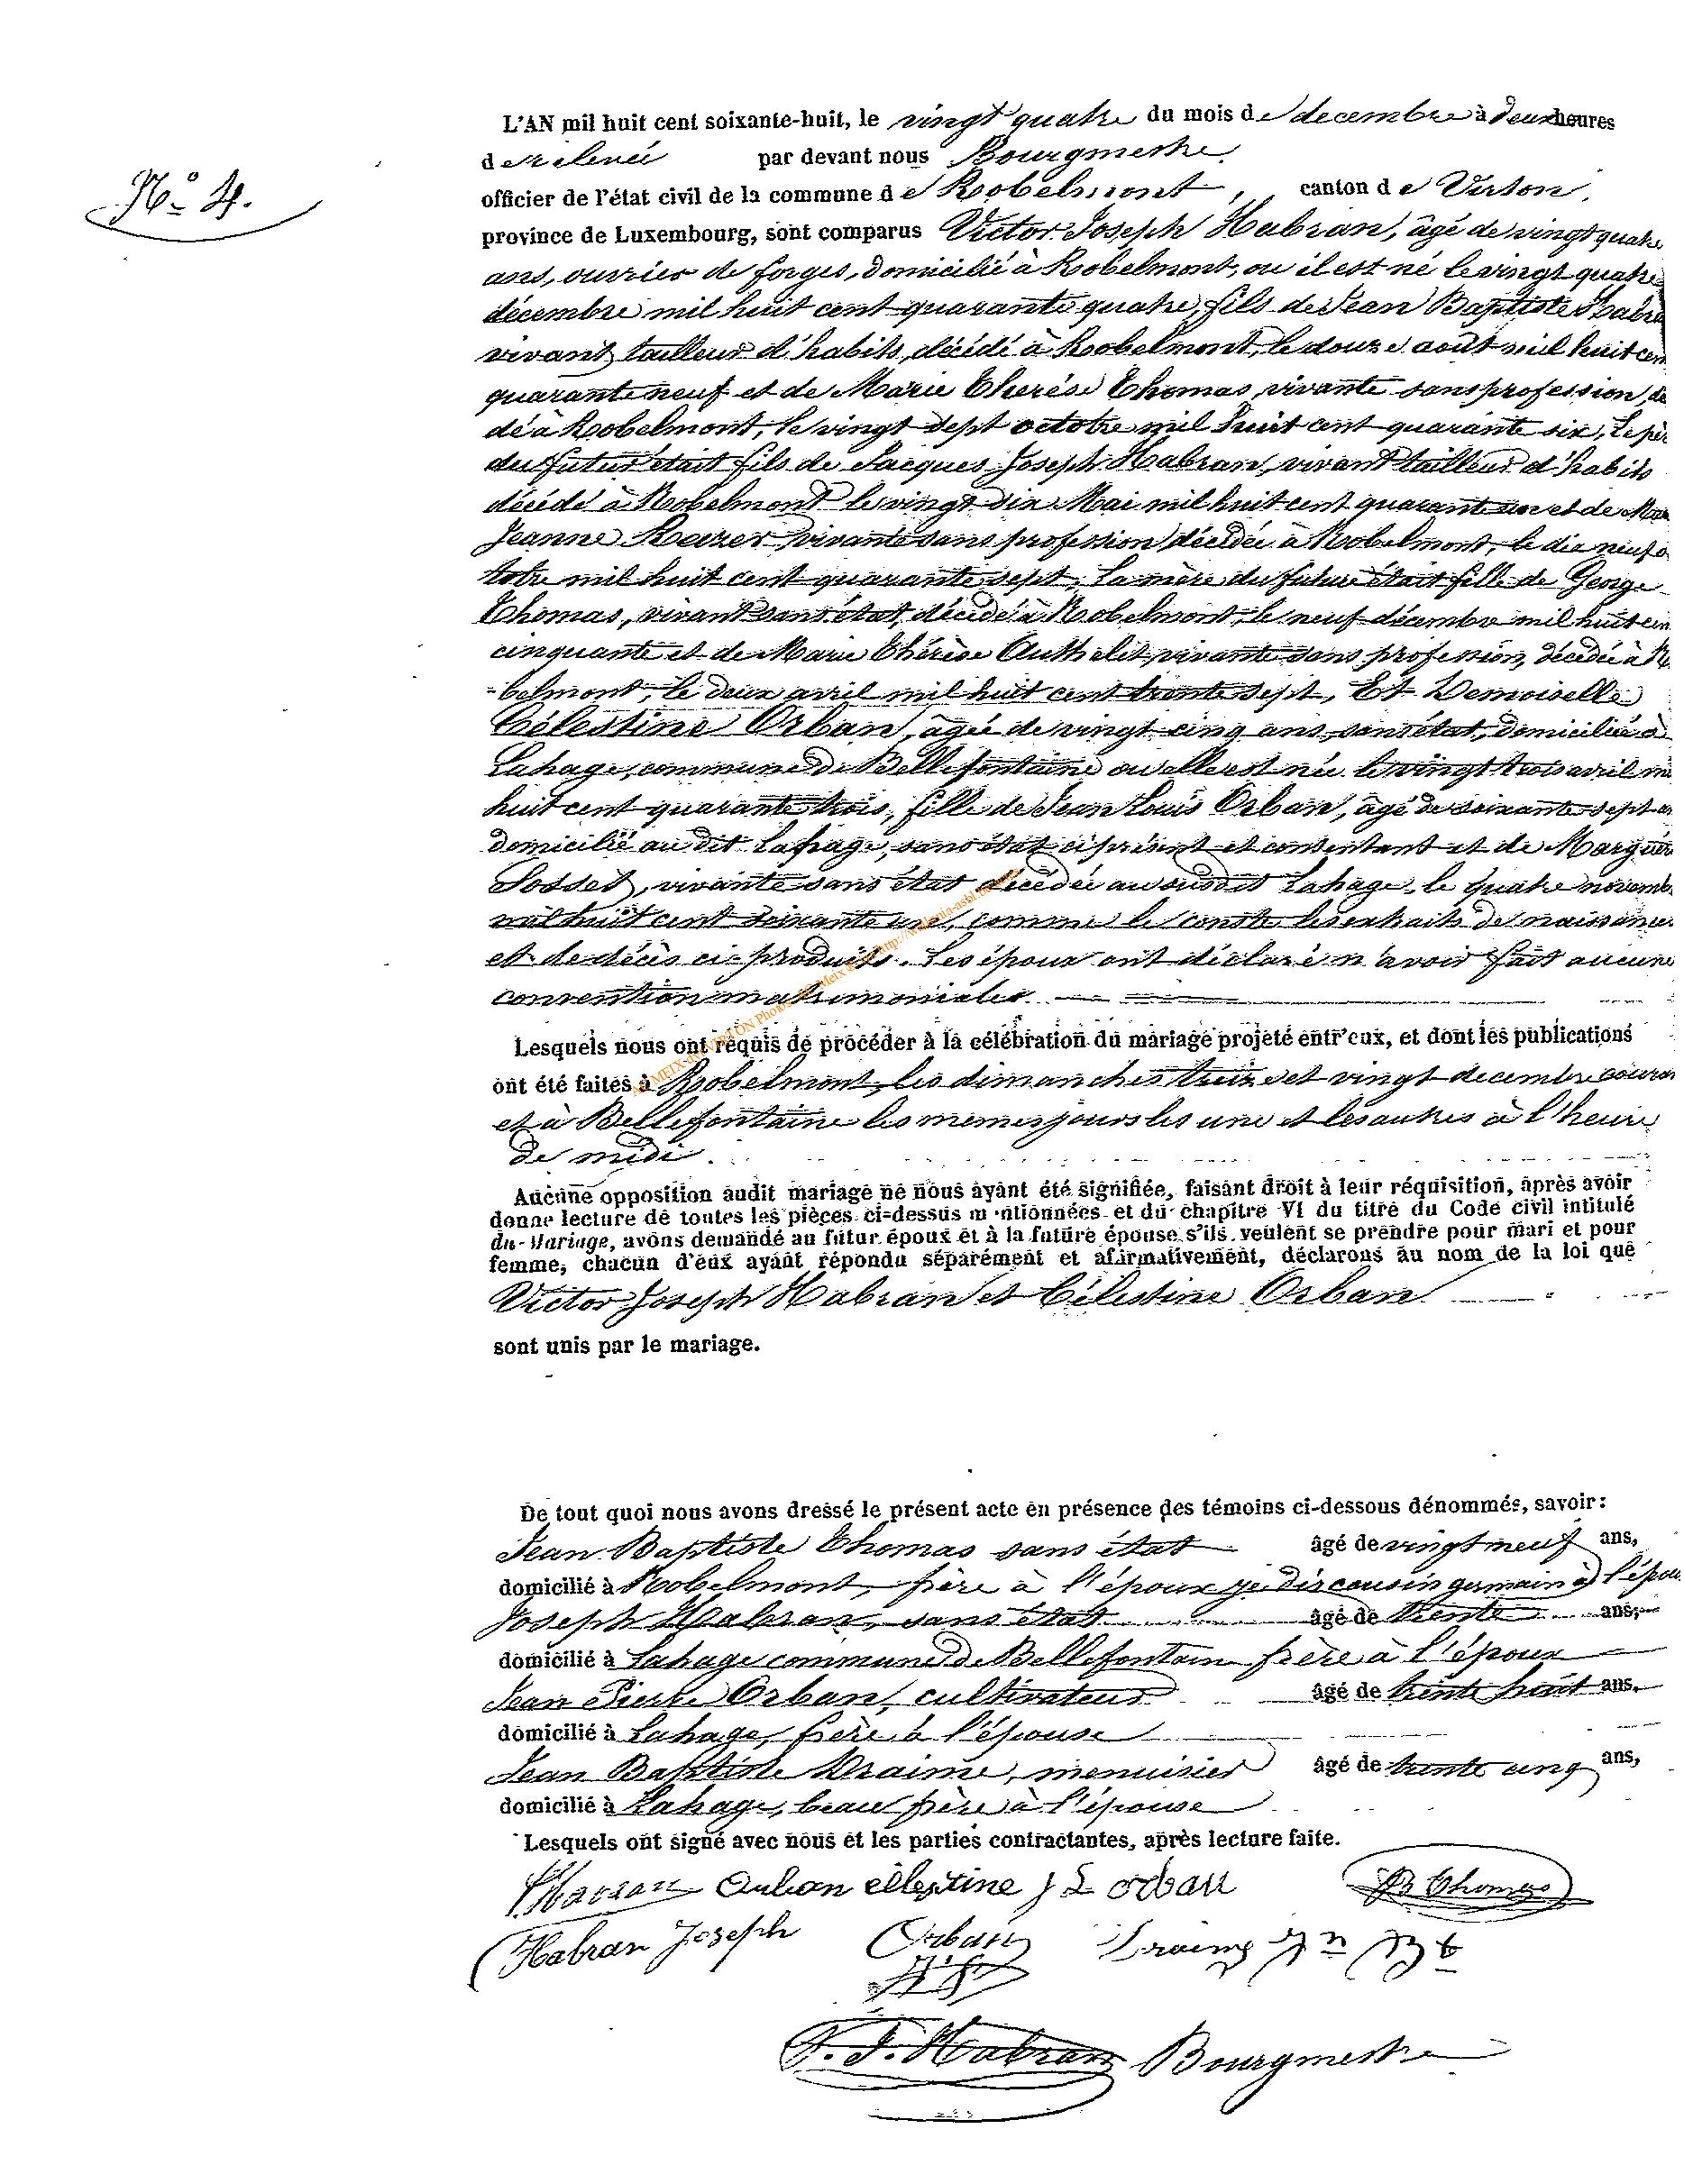 L'AN mil huit cent soixante-huit, le vingt quatre du mois de decembre à deux heures
de relevée par devant nous Bourgmestre
officier de l'état civil de la commune de Robelmont, canton de Virton,
province de Luxembourg, sont comparus Victor Joseph Habran, âgé de vingt quatre
N° 4.
ans, ouvrier de forges, domicilié à Robelmont, ou il est né le vingt quatre
décembre mil huit cent quarante quatre, fils de Jean Baptiste Habra
vivant tailleur d'habits, décédé à Robelmont, le douze août mil huit cen
quarante neuf et de Marie Therése Thomas, vivante sans profession, de
dé à Robelmont, le vingt sept octobre mil huit cent quarante six, Le pèr
du futur était fils de Jacques Joseph Habran, vivant tailleur d'habits
décédé à Robelmont le vingt dix Mai mil huit cent quarante un et de Mar
Jeanne vivante sans profession décédée à Robelmont, le dix neuf o
tobre mil huit cent quarante sept, La mère du future était fille de George
Thomas, vivant sans état, décédé à Robelmont, le neuf décembre mil huit cen
cinquante et de Marie Thérèse Authelet, vivante sans profession, décédée à R
-belmont, le deux avril mil huit cent trente sept, Et Demoiselle
Célestine Orban, âgée de vingt cinq ans, sans état, domiciliée à
Lahage, commune de Bellefontaine ou elle est née le vingt trois avril mi
huit cent quarante trois, fille de Jean Louis Orban, âgé de soixante sept a
domicilié au dit Lahage, sans état ci présent et consentant et de Marguer
Sosset, vivante sans état décédée au susdit Lahage, le quatre novemb
mil huit cent soixante un, comme le les extraits de naissance
et de décès ci-produits. Les époux ont déclaré n'avoir fait aucune
convention matrimoniales.
Lesquels nous ont requis de procéder à la célébration du mariage projeté entr'eux, et dont les publications
ont été faites à Robelmont, les dimanches treize et vingt decembre couran
et à Bellefontaine les memes jours les une et les autres à l'heure
de midi.
Aucune opposition audit mariage ne nous ayant été signifiée, faisant droit à leur réquisition, après avoir
donne lecture de toutes les pièces ci-dessus m ntionnées et du chapitre VI du titre du Code civil intitulé
du Mariage, avons demandé au futur époux et à la future épouse s'ils veulent se prendre pour mari et pour
femme, chacun d'eux ayant répondu séparément et afirmativement, déclarons au nom de la loi que
Victor Joseph Habran et Célestine Orban
sont unis par le mariage.
De tout quoi nous avons dressé le présent acte en présence des témoins ci-dessous dénommés, savoir:
Jean Baptiste Thomas sans état âgé de vingt neuf ans,
domicilié à Robelmont, frère à l'époux je dis cousin germain à l'épou
Joseph Habran, sans état âgé de trente ans,
domicilié à Lahage commune de Bellefontaine frère à l'époux
Jean Pierre Orban, cultivateur âgé de trente huit ans,
domicilié à Lahage, frère à l'épouse
Jean Baptiste Draime, menuisier âgé de trente cinq ans,
domicilié à Lahage, beau frère à l'épouse
Lesquels ont signé avec nous et les parties contractantes, après lecture faite.
Habran Orban célestine J L orban JB Thomas
Habran Joseph Orban J.P. Draime Jn Bte
J. Habran Bourgmestre